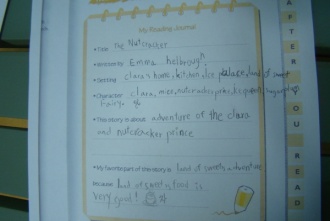 My Reading Journal
Title The Nutcracker
Written by Emma helbrough
Setting clara's home, kitchen, ice palace, land of sweet
Character clara, mice, nutcracker, prince,
fairy,
This story is about adventure of the clara
and nutcracker prince
My favorite part of this story is land of sweets adventure
because land of sweets food is
very good!
AFTER YOU READ